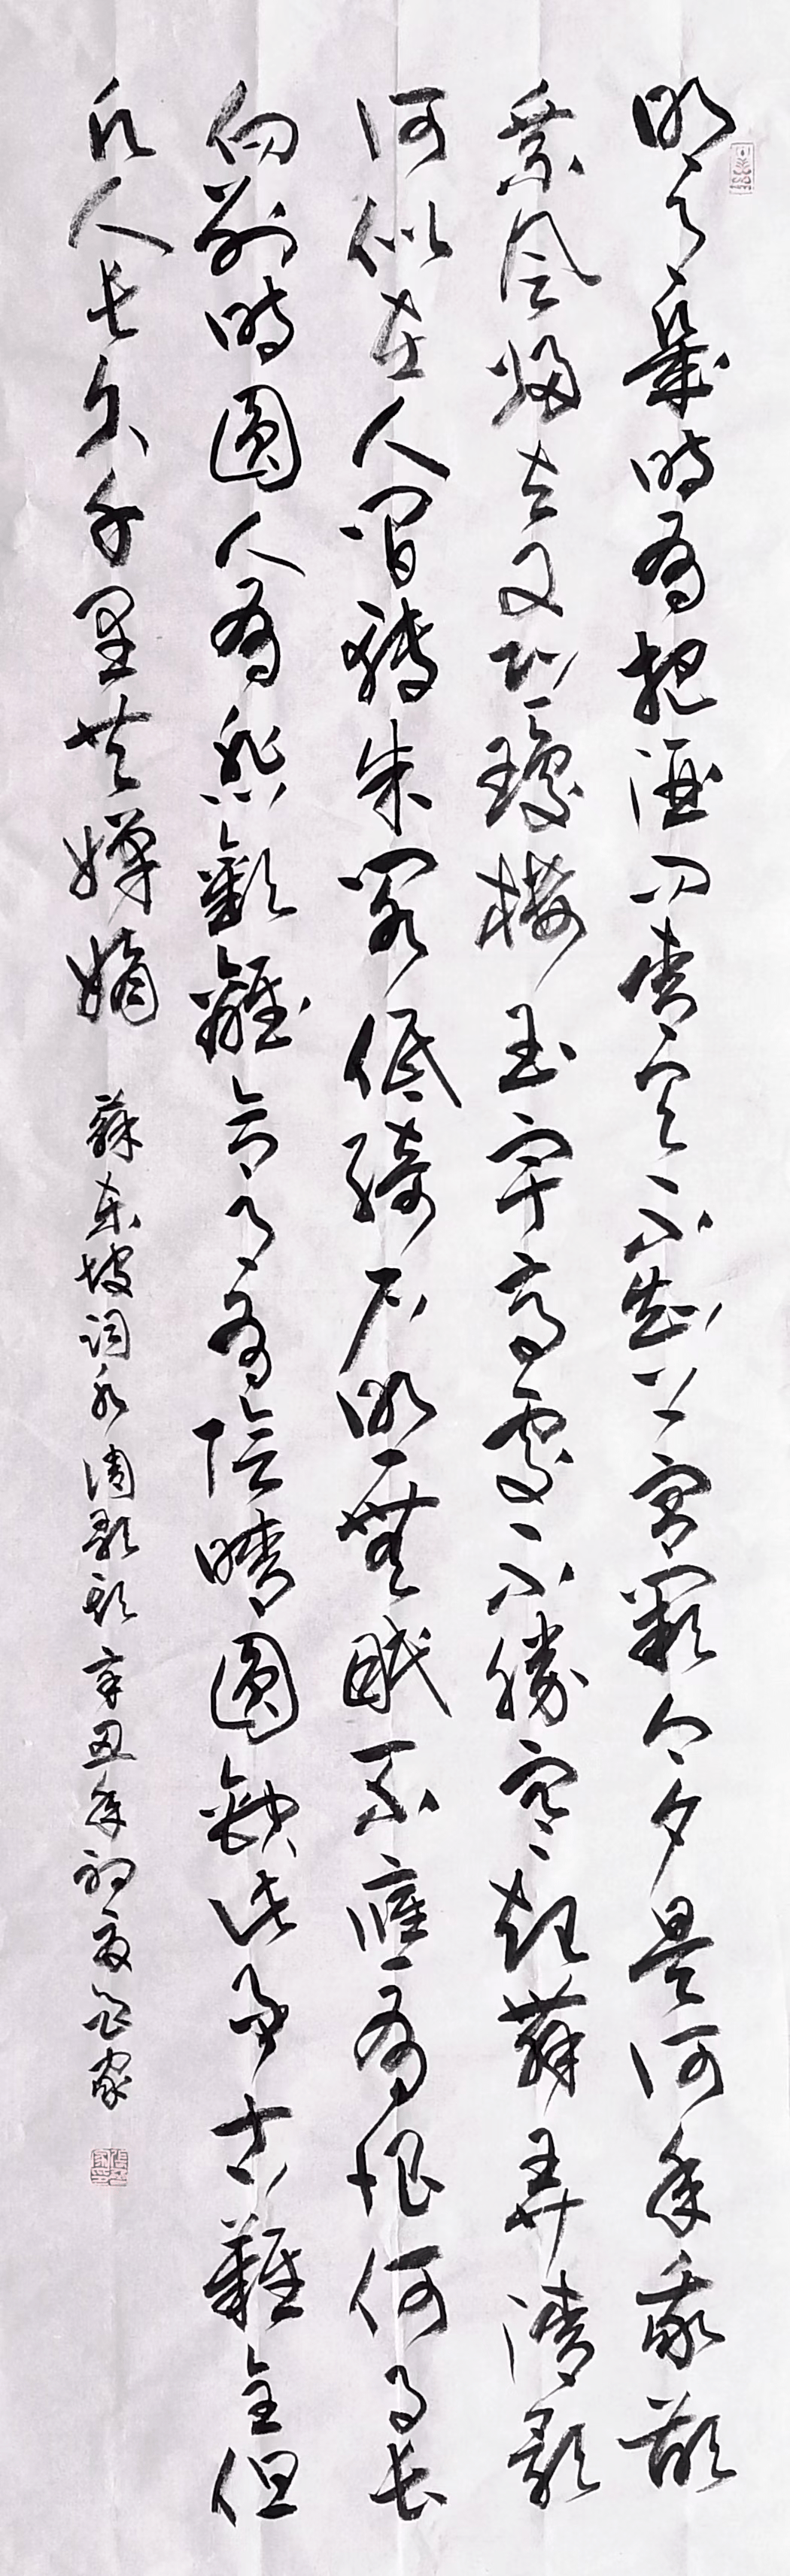 明月幾時有把酒問青天不知上宮闕今夕是何年我欲
乘風歸去又恐瓊樓玉宇高處不勝寒起舞弄清影
何似在人間轉朱閣低綺戶明無眠不應有恨何事長
向別時圓人有悲歡離合月有陰晴圓缺此事古難全但
願人長久千里共嬋娟
蘇東坡詞水調歌頭辛丑年初夏